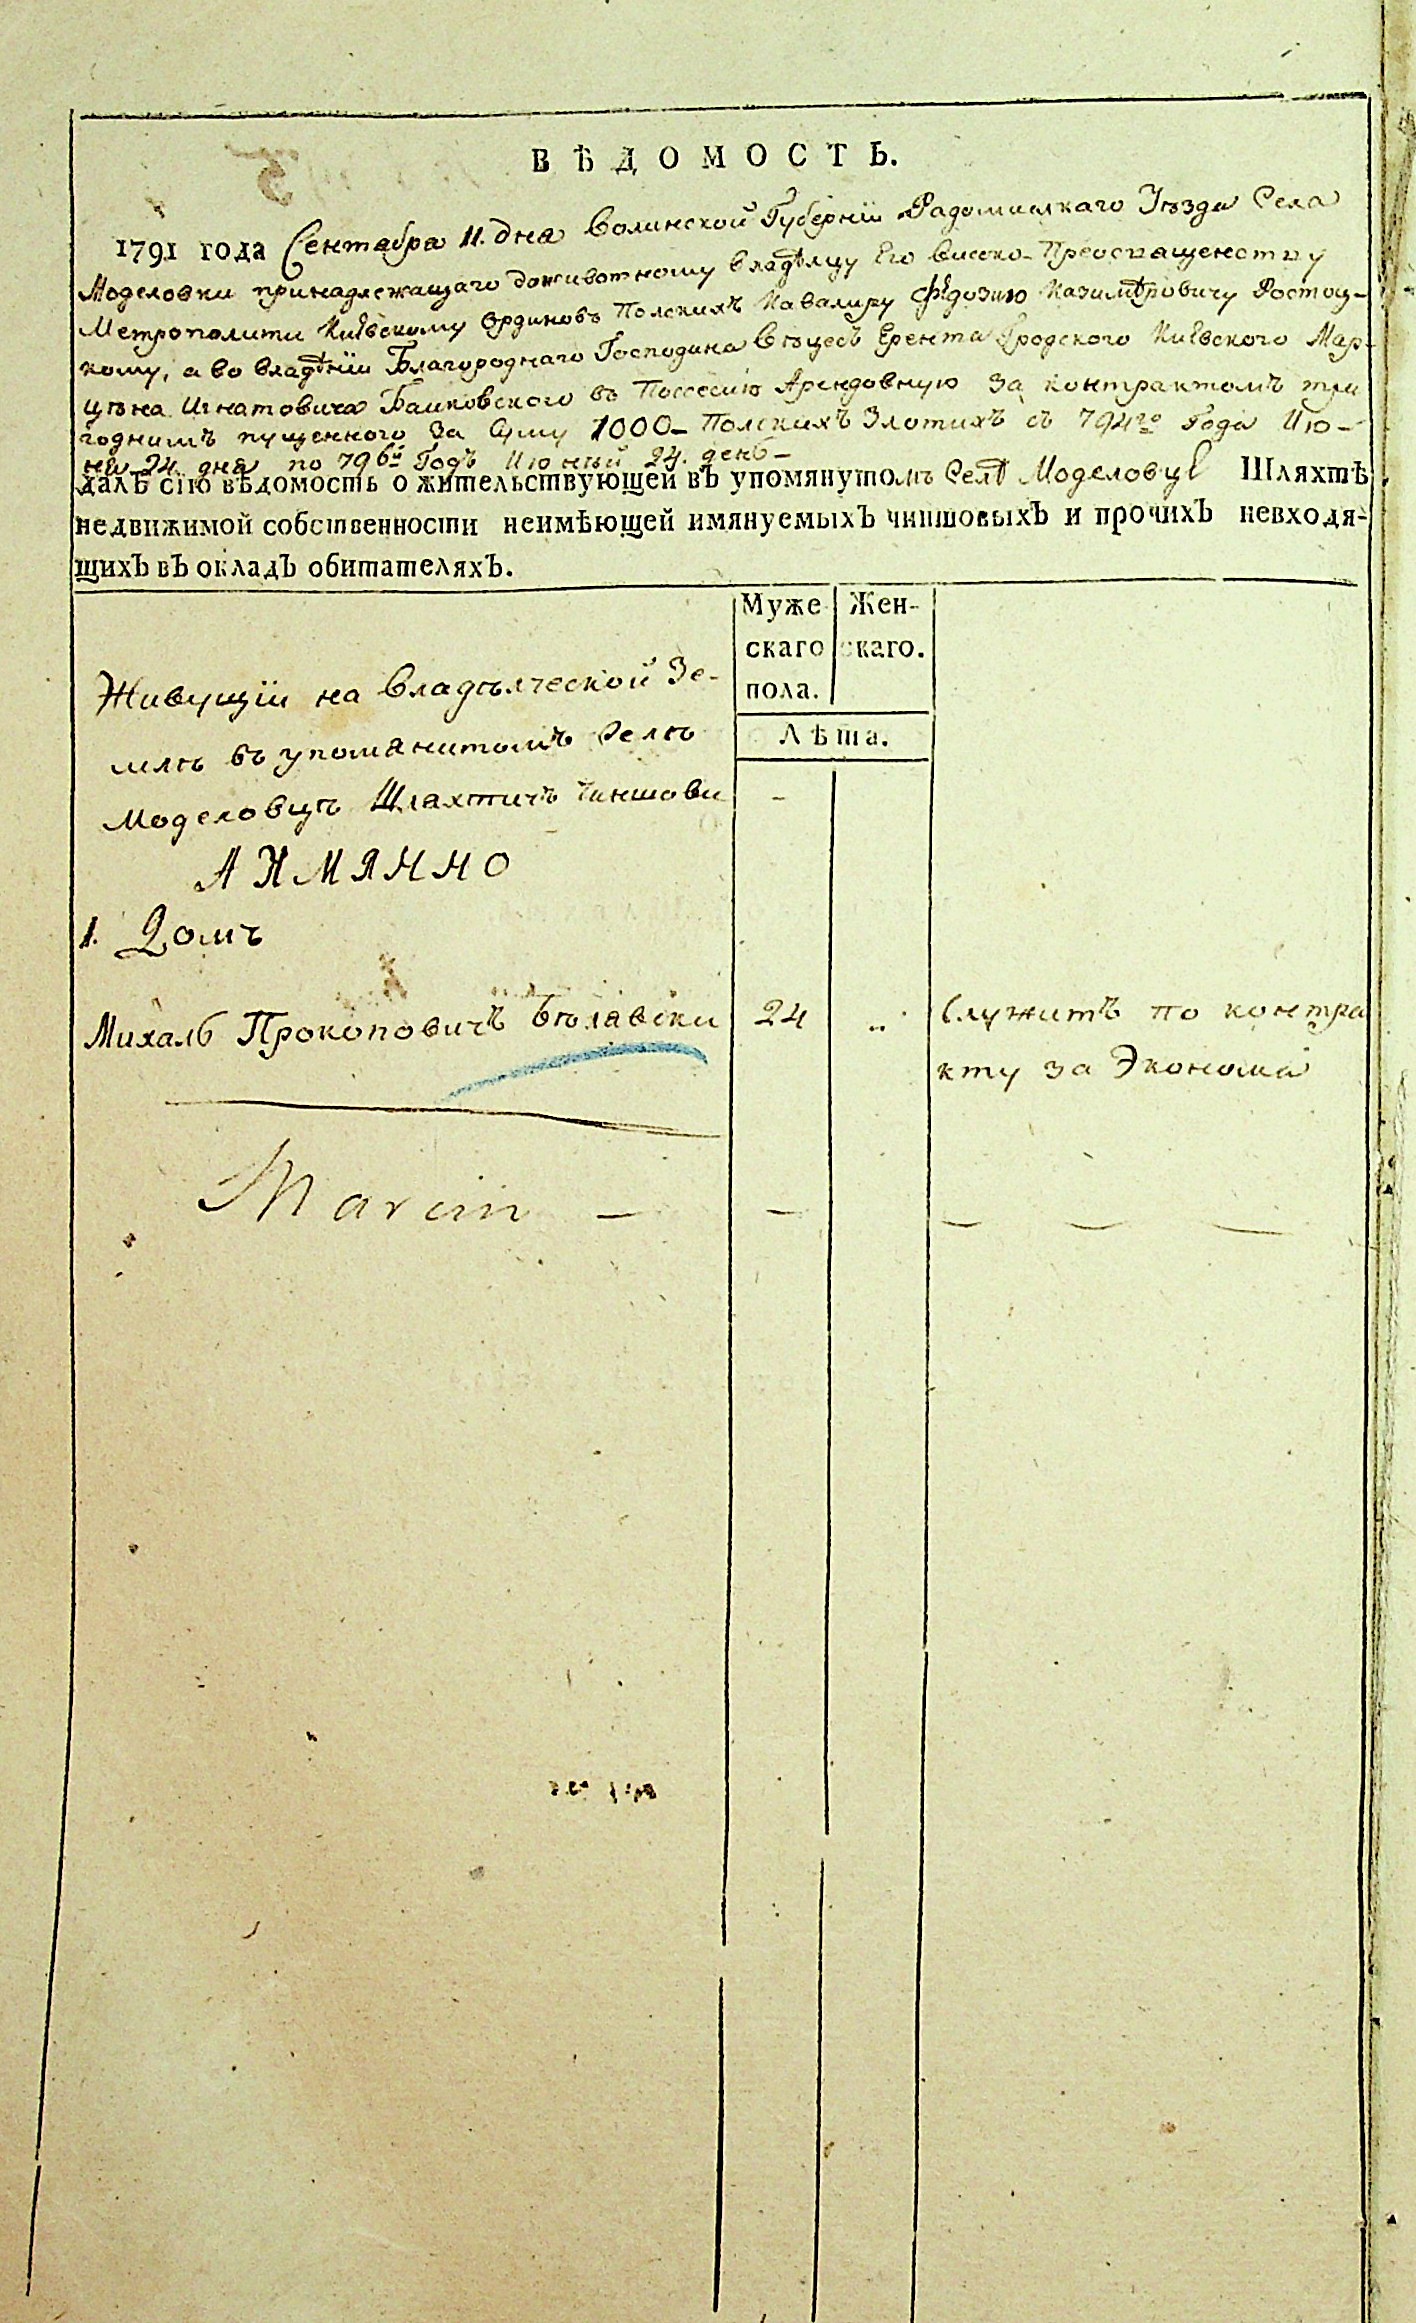 ВѢДОМОСТЬ.
1791 года Сентабра 11. дна Волинской Губернїи Радомислкаго Уѣзда Села
Моделовки принадлежащаго доживотному Владѣлцу Его високо-Преосвященству
Метрополити Киевскому Ординовъ Полскихъ Кавалиру Фѣдозию Казимѣровичу Ростоц-
кому, а во владѣнїи Благороднаго Господина Вѣцесъ Ерента Гродского Киевского Мар-
цѣна Игнатовича Баиковского въ Поссесию Арендовную за контрактомъ три
годнимъ пущенного За Суму 1000- Полскихъ Злотихъ съ 794го Года Ию-
на 24. дня по 796й Годъ Июный 24. день-
далъ сїю вѣдомость о жительствующей въ упомянутомъ Селѣ Моделовце Шляхтѣ
недвижимой собственности неимѣющей имянуемыхъ чиншовыхъ и прочихъ невходя-
щихъ въ окладъ обитателяхъ.
Муже скаго пола.
Жен- скаго.
Лѣта.
Живущїи на Владѣлческой Зе-
млѣ въ упоманитомъ Селѣ
Моделовцѣ Шлахтичъ Чиншови -
А ИМЯННО
1. Домъ
Михалъ Прокоповичъ Бѣлавски 24 „ Служитъ по контра
кту за Экнома
Marcin - - - - -